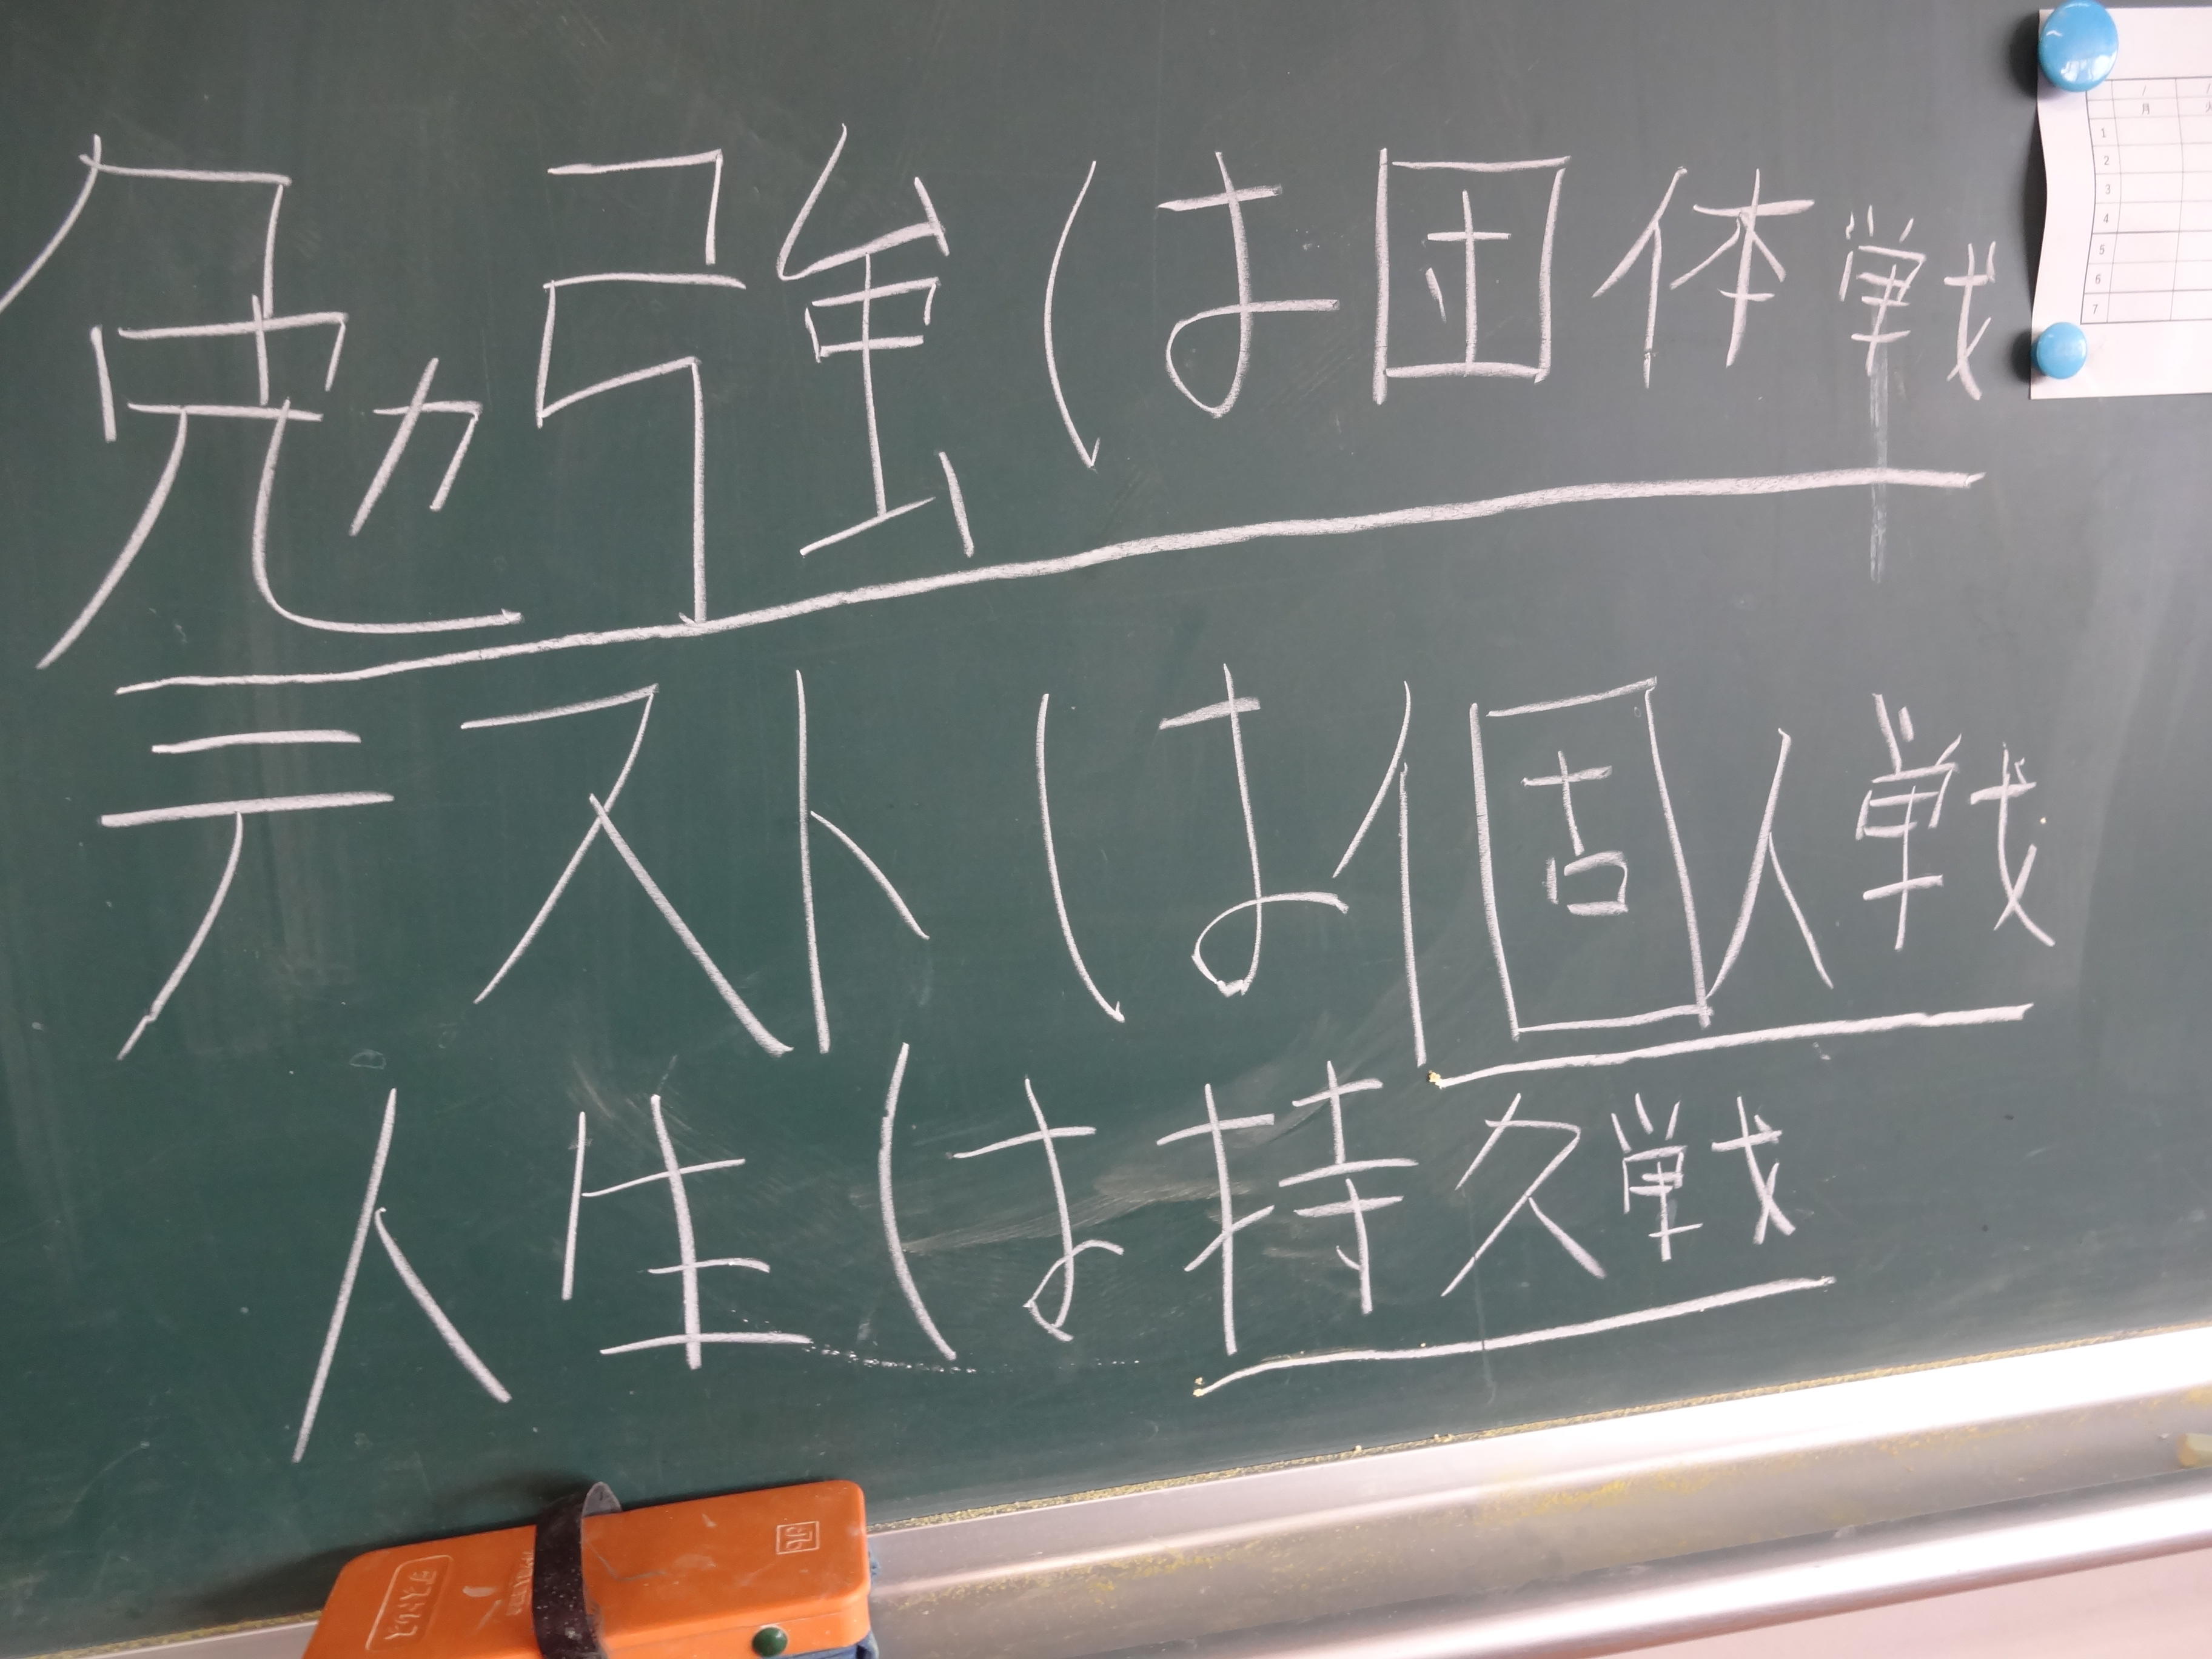 勉強は団体戦
テストは個人戦
人生は持久戦
月
1
2
3
4
5
6
7